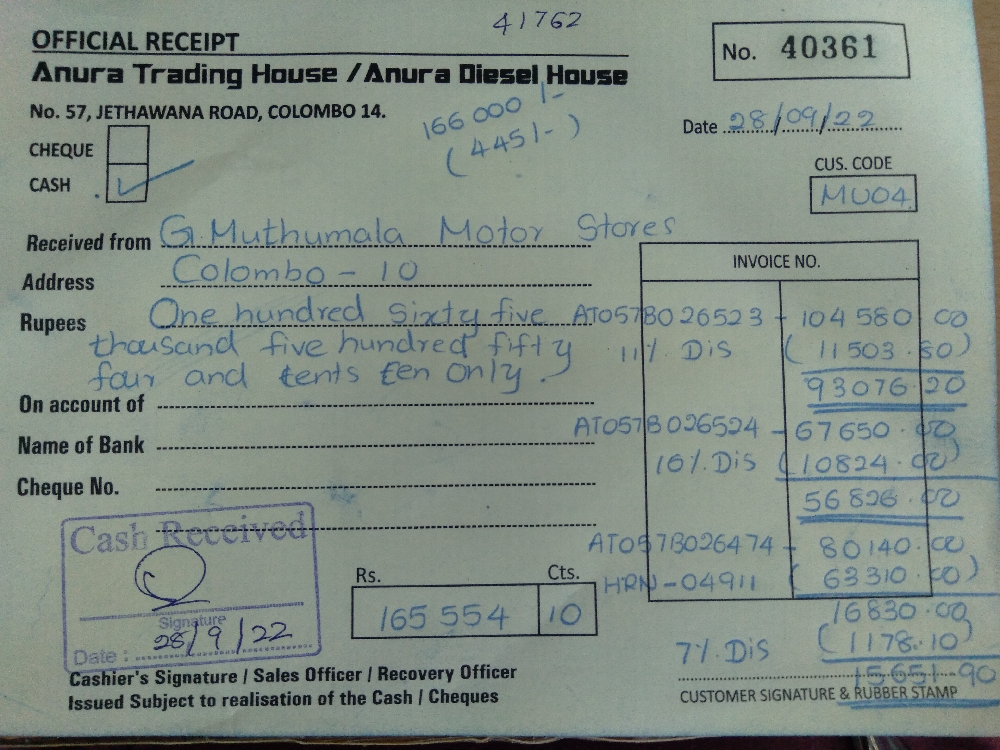 41762
OFFICIAL RECEIPT
No. 40361
Anura Trading House / Anura Diesel House
No. 57, JETHAWANA ROAD, COLOMBO 14.
166 000 /-
(4451/-)
Date 28/09/22
CHEQUE
CASH
CUS. CODE
MU04
Received from G. Muthumala Motor Stores
Address Colombo - 10
INVOICE NO.
Rupees One hundred Sixty five
thousand five hundred fifty
four and cents ten only.
AT057B026523 - 104 580 00
11% Dis (11503.80)
93076.20
On account of
AT057B026524 - 67650.00
Name of Bank
16% Dis (10824.00)
Cheque No.
56826.00
AT057B026474 - 80140.00
HRN-04911 (63310.00)
16830.00
7% Dis (1178.10)
15651.90
Cash Received
Signature
Date : 28/9/22
Rs. Cts.
165 554 10
Cashier's Signature / Sales Officer / Recovery Officer
Issued Subject to realisation of the Cash / Cheques
CUSTOMER SIGNATURE & RUBBER STAMP